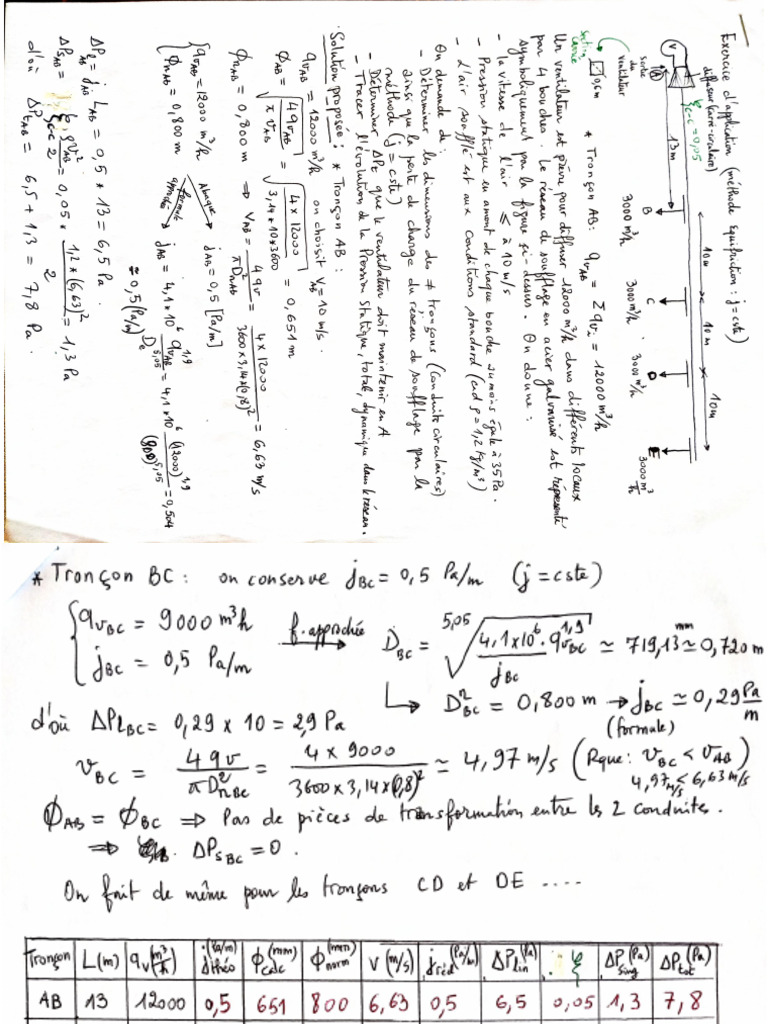 Exercice d'application (méthode Equifriction : j = cste)
diffuseur (carré-circulaire)
ξc-c = 0,05
V
A
sortie
du
ventilateur
section
carrée
0,6m
13m
10m
10m
10m
B
C
D
E
3000 m³/h
3000 m³/h
3000 m³/h
3000 m³/h
* Tronçon AB: qvAB = Σ qvi = 12000 m³/h
Un ventilateur est prévu pour diffuser 12000 m³/h dans différents locaux
par 4 bouches. Le réseau de soufflage en acier galvanisé est représenté
symboliquement par la figure ci-dessus. On donne :
- la vitesse de l'air ≤ à 10 m/s
- Pression statique en amont de chaque bouche au moins égale à 35 Pa.
- L'air soufflé est aux conditions standard (càd ρ = 1,2 kg/m³)
On demande de :
- Déterminer les dimensions des ≠ tronçons (conduite circulaires)
ainsi que la perte de charge du réseau de soufflage par la
méthode (j = cste)
- Déterminer ΔPt que le ventilateur doit maintenir en A
- Tracer l'évolution de la Pression Statique, totale, dynamique dans le réseau.
Solution proposée : * Tronçon AB :
qvAB = 12000 m³/h on choisit VAB = 10 m/s.
ϕAB = √(4qvAB / π vAB) = √(4×12000 / 3,14×10×3600) = 0,651 m
ϕnAB = 0,800 m ⇒ VAB = 4qv / πD²nAB = 4×12000 / 3600×3,14×(0,8)² = 6,63 m/s
{ qvAB = 12000 m³/h
ϕnAB = 0,800 m
Abaque → jAB = 0,5 [Pa/m]
formule approchée → jAB = 4,1×10⁶ qvAB^1,9 / De^5,05 = 4,1×10⁶ (12000)^1,9 / (800)^5,05 = 0,504
≃ 0,5 (Pa/m)
ΔPlAB = jAB LAB = 0,5 * 13 = 6,5 Pa.
ΔPsAB = ξc-c ρv²AB / 2 = 0,05 × 1,2×(6,63)² / 2 = 1,3 Pa
d'où ΔPtAB = 6,5 + 1,3 = 7,8 Pa.
* Tronçon BC : on conserve jBC = 0,5 Pa/m (j = cste)
{ qvBC = 9000 m³h
jBC = 0,5 Pa/m
f. approchée → DBC = 5,05√(4,1×10⁶. qvBC^1,9 / jBC) ≃ 719,13 mm ≃ 0,720 m
↳ DnBC = 0,800 m → jBC ≃ 0,29 Pa/m
(formule)
d'où ΔPlBC = 0,29 × 10 = 2,9 Pa
vBC = 4qv / πD²nBC = 4 × 9000 / 3600×3,14×(0,8)² ≃ 4,97 m/s (Rque : vBC < vAB)
4,97 m/s < 6,63 m/s
ϕAB = ϕBC ⇒ Pas de pièces de transformation entre les 2 conduites.
⇒ ΔPsBC = 0.
On fait de même pour les tronçons CD et DE ....
Tronçon | L(m) | qv (m³/h) | jthéo (Pa/m) | ϕcalc (mm) | ϕnorm (mm) | V (m/s) | jréel (Pa/m) | ΔPlin (Pa) | ξ | ΔPsing (Pa) | ΔPtot (Pa)
AB | 13 | 12000 | 0,5 | 651 | 800 | 6,63 | 0,5 | 6,5 | 0,05 | 1,3 | 7,8